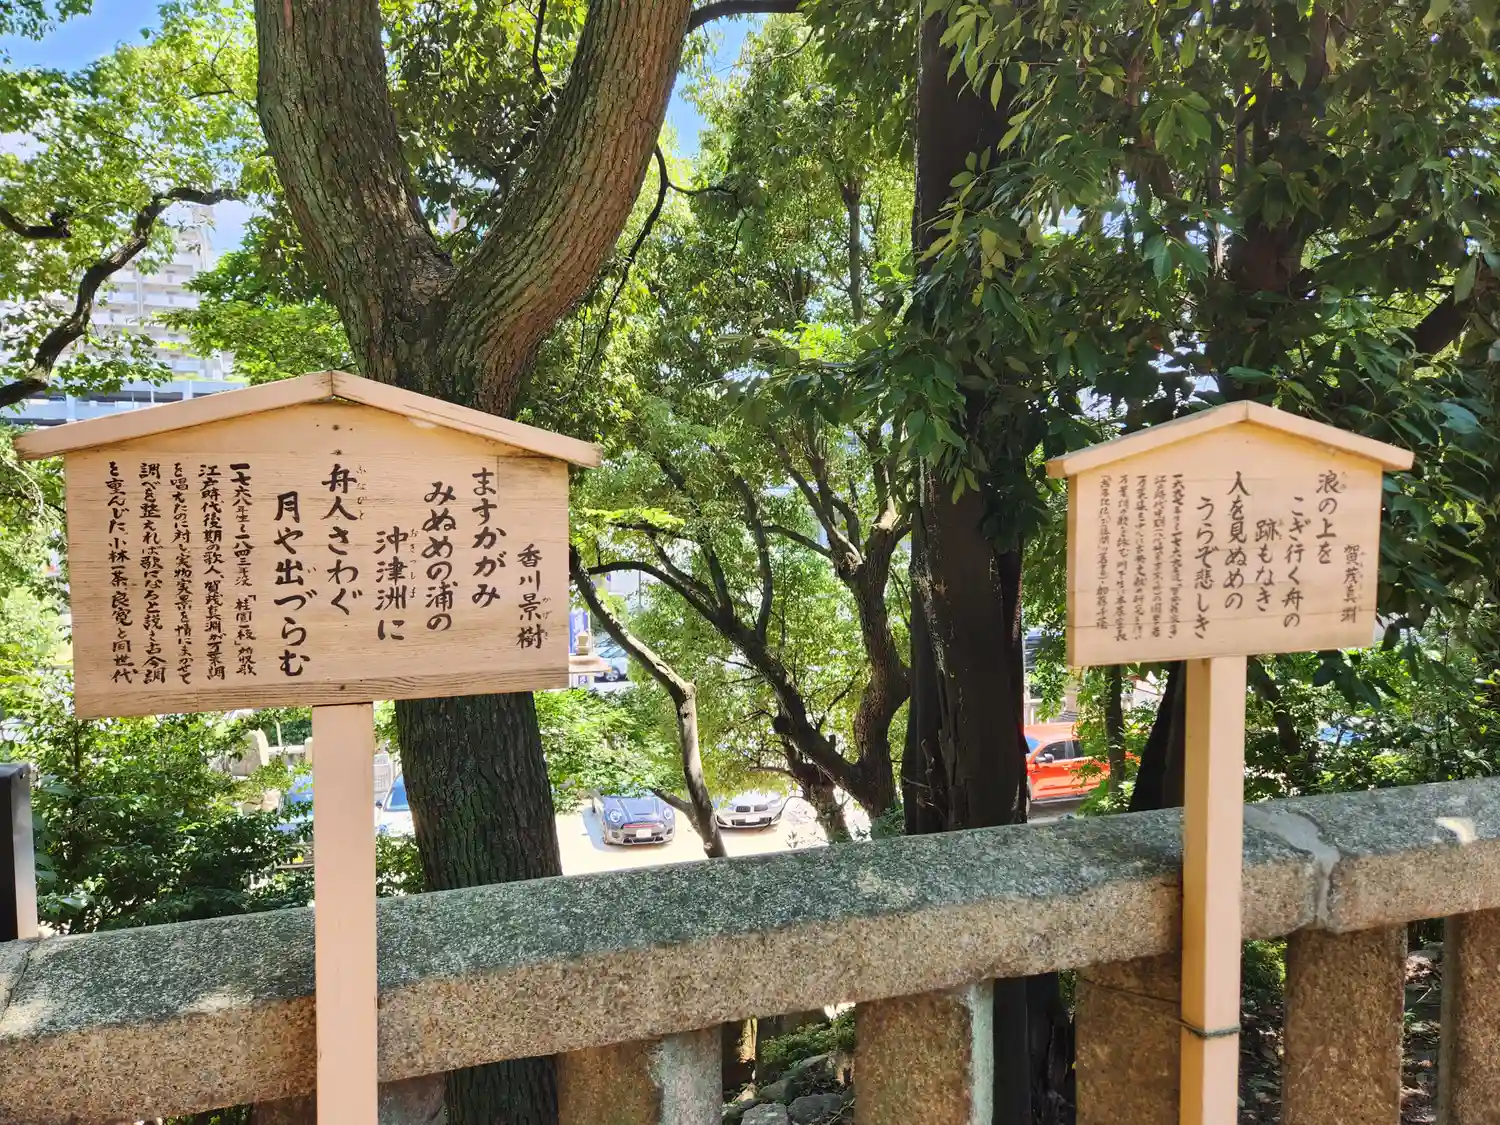 香川景樹
かげき
ますかがみ
みぬめの浦の
沖津洲に
おきつしま
舟人さわぐ
ふなびと
月や出づらむ
一七六八年生〜一八四三年没 「桂園一枝」所収歌
江戸時代後期の歌人。賀茂真淵が万葉調
を唱えたのに対し実物実景を情にまかせて
調べを整えれば歌になると説き古今調
を重んじた。小林一茶、良寛と同世代
賀茂真淵
浪の上を
こぎ行く舟の
跡もなき
人を見ぬめの
うらぞ悲しき